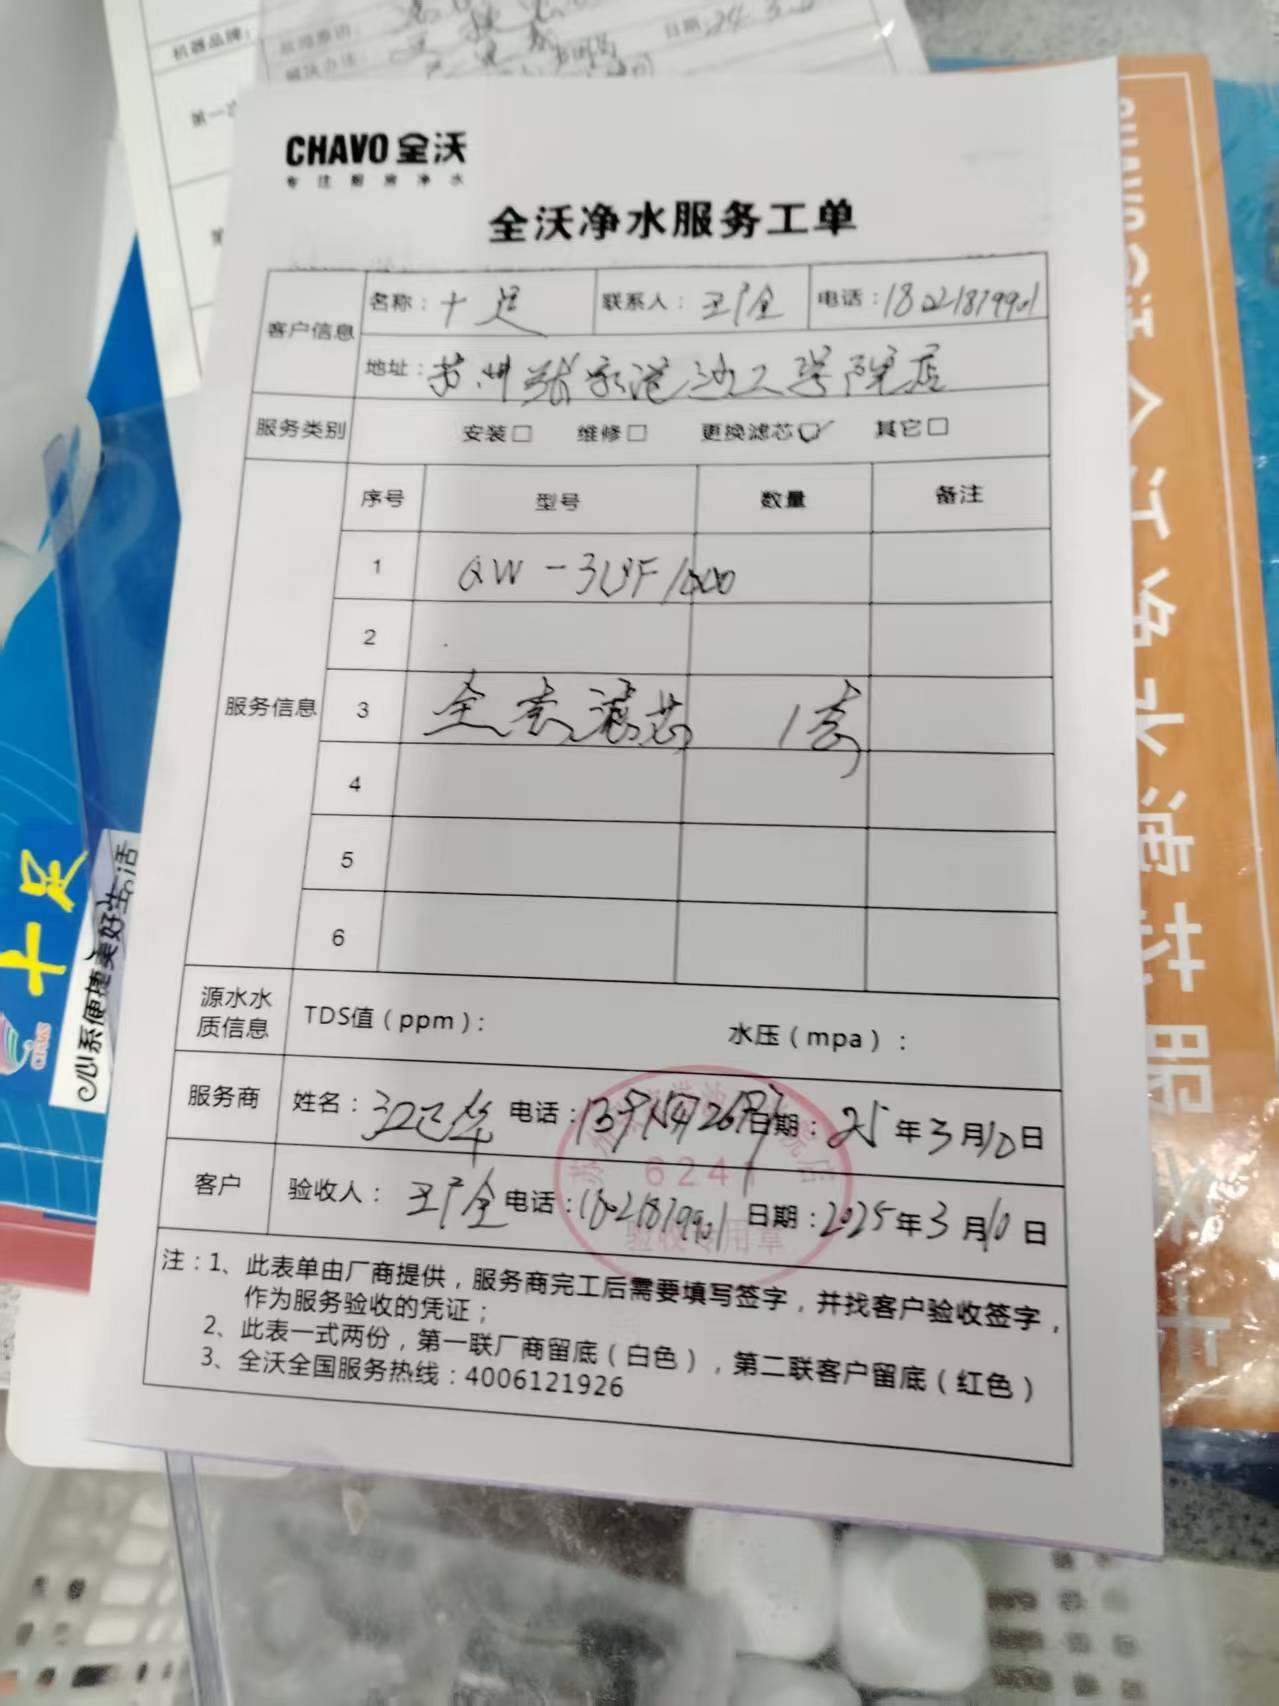 机器品牌:
日期:24.3.
CHAVO 全沃
专注厨房净水
全沃净水服务工单
客户信息 名称: 十足 联系人: 王广全 电话: 18021879901
地址: 苏州张家港沙工学院店
服务类别 安装□ 维修□ 更换滤芯☑ 其它□
服务信息 序号 型号 数量 备注
1 QW-3UF1000
2
3 全套滤芯 1套
4
5
6
源水水质信息 TDS值(ppm): 水压(mpa):
服务商 姓名: 电话: 日期: 25年3月10日
客户 验收人: 王广全 电话: 18021879901 日期: 2025年3月10日
6241
验收专用章
注:1、此表单由厂商提供,服务商完工后需要填写签字,并找客户验收签字,
作为服务验收的凭证;
2、此表一式两份,第一联厂商留底(白色),第二联客户留底(红色)
3、全沃全国服务热线:4006121926
十足
心系便捷美好生活